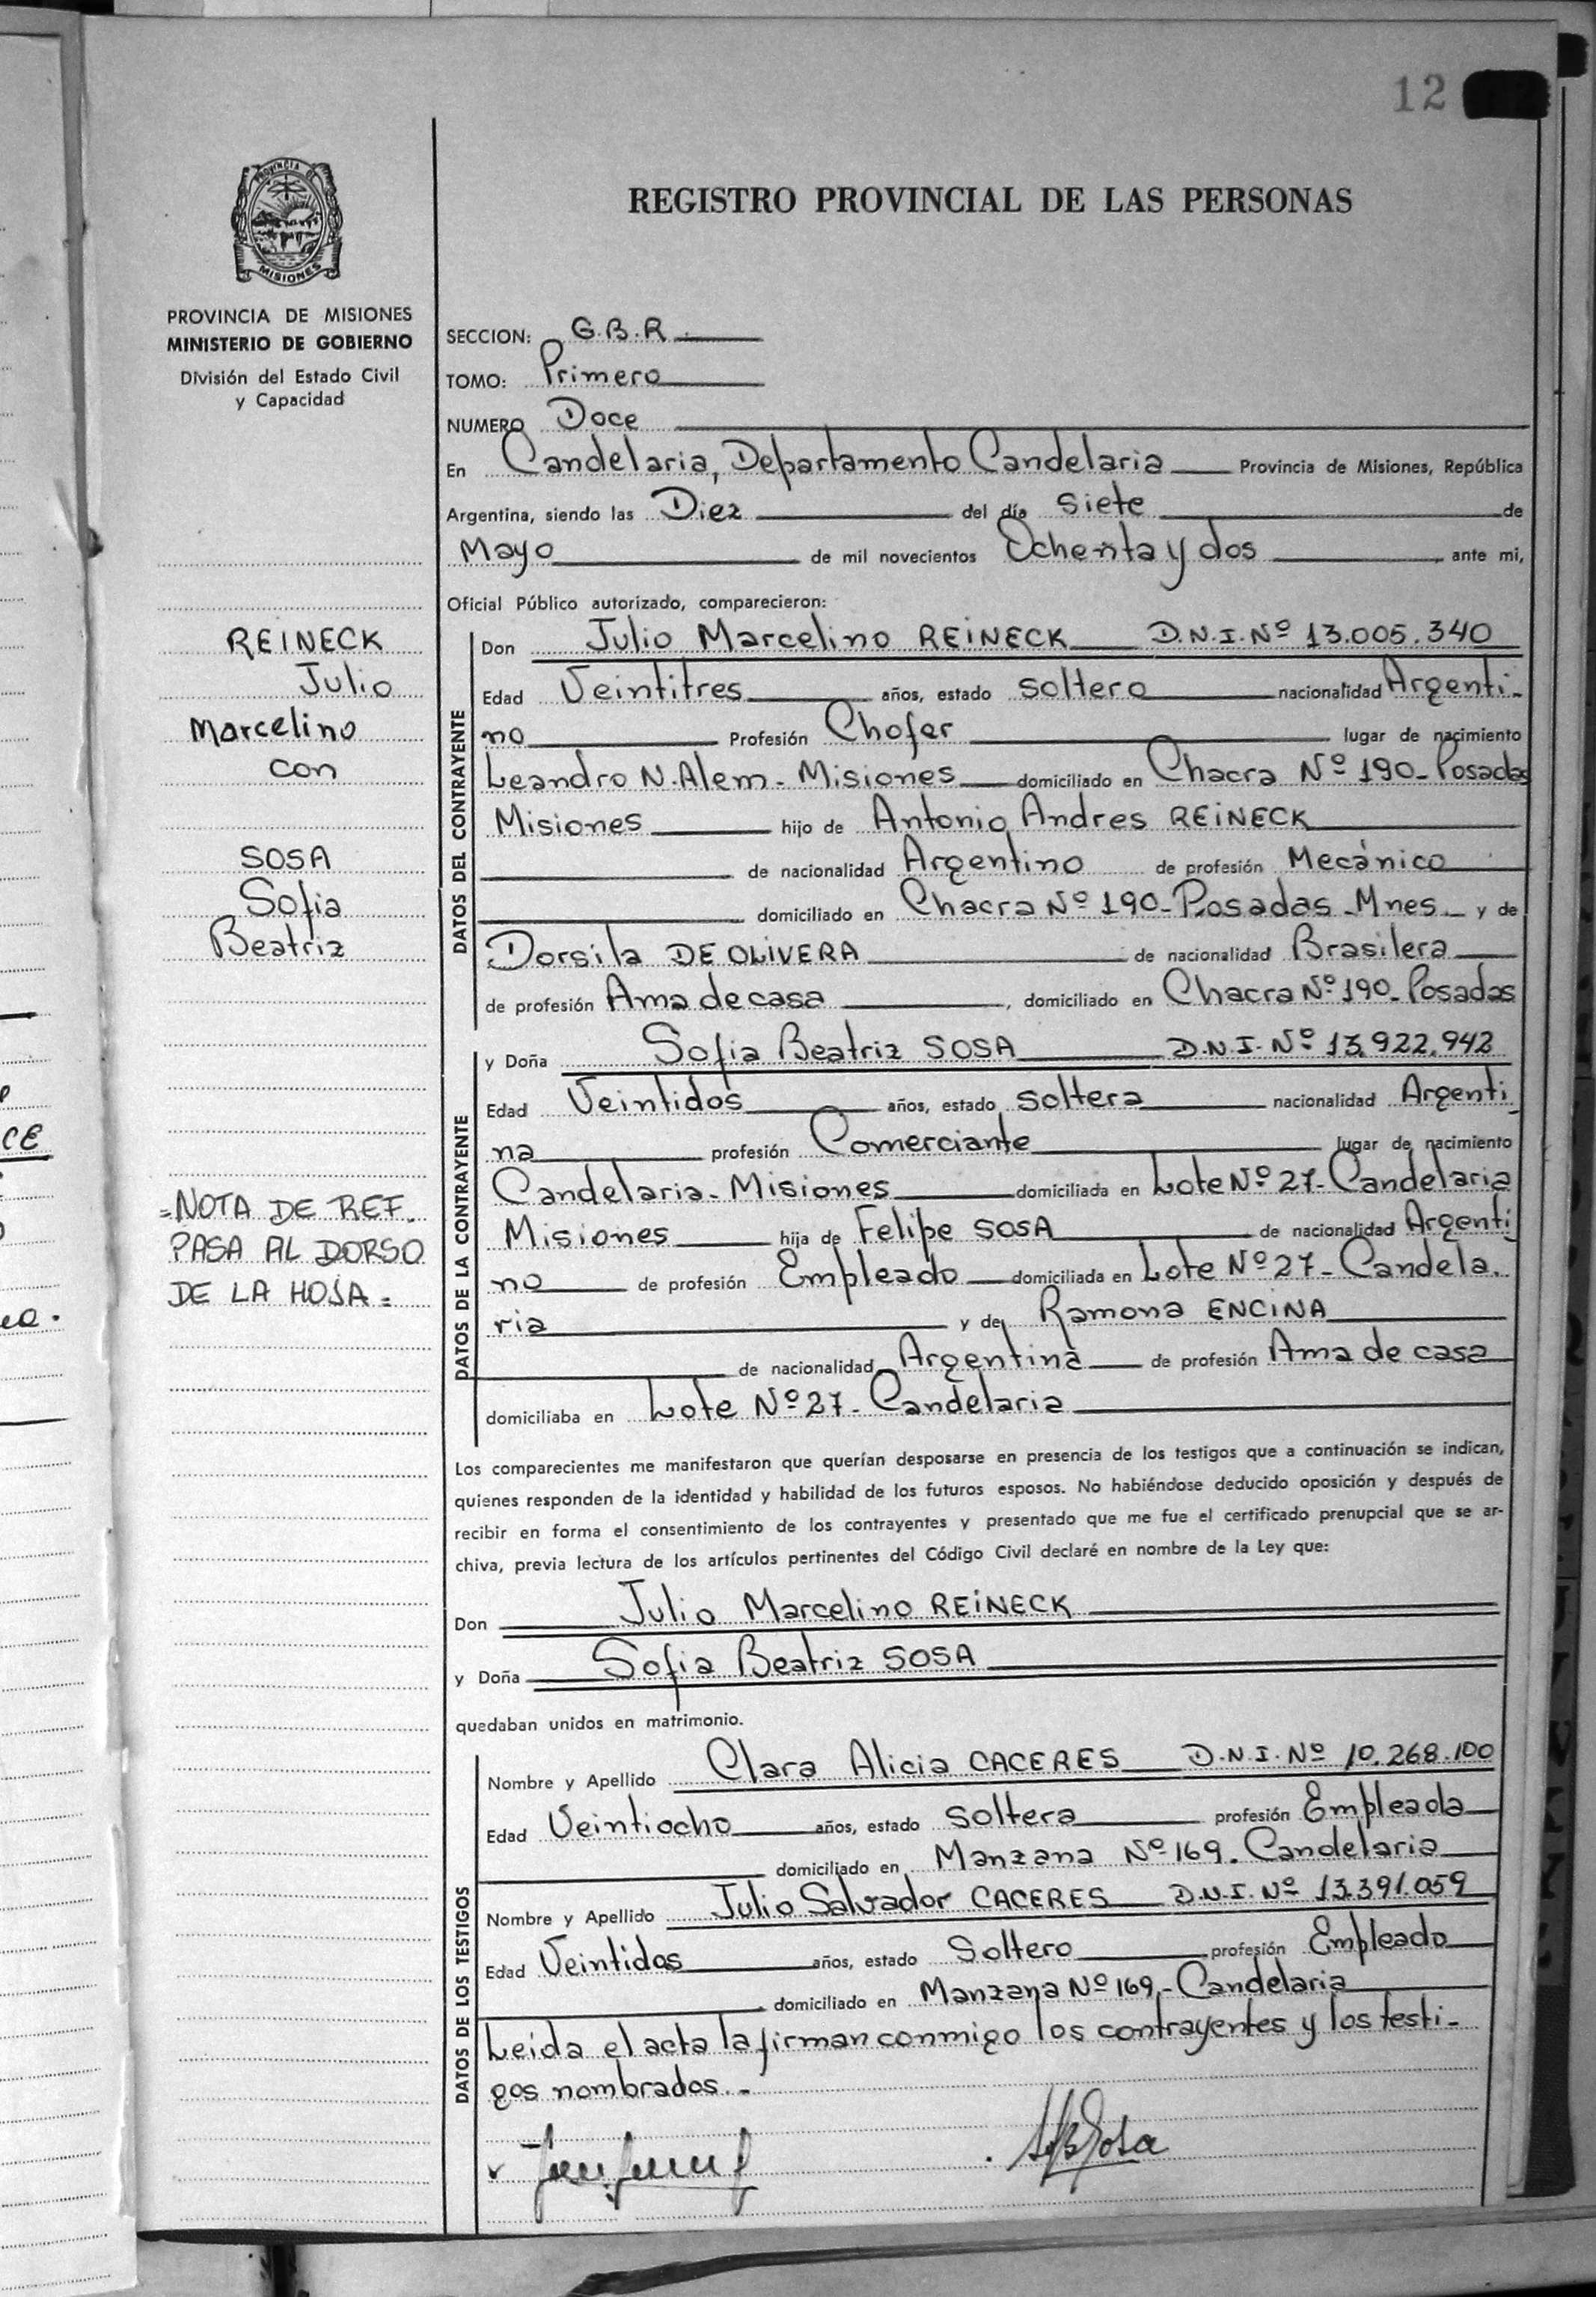 12
PROVINCIA DE
MISIONES
REGISTRO PROVINCIAL DE LAS PERSONAS
PROVINCIA DE MISIONES
MINISTERIO DE GOBIERNO
División del Estado Civil
y Capacidad
SECCION: G.B.R.
TOMO: Primero
NUMERO Doce
En Candelaria, Departamento Candelaria Provincia de Misiones, República
Argentina, siendo las Diez del día siete de
Mayo de mil novecientos Ochenta y dos, ante mi,
Oficial Público autorizado, comparecieron:
REINECK
Julio
Marcelino
con
SOSA
Sofia
Beatriz
=NOTA DE REF.
PASA AL DORSO
DE LA HOJA=
DATOS DEL CONTRAYENTE
Don Julio Marcelino REINECK D.N.I. Nº 13.005.340
Edad Veintitres años, estado soltero nacionalidad Argenti-
no Profesión Chofer lugar de nacimiento
Leandro N. Alem - Misiones domiciliado en Chacra Nº 190 - Posadas
Misiones hijo de Antonio Andres REINECK
de nacionalidad Argentino de profesión Mecánico
domiciliado en Chacra Nº 190 - Posadas - Mnes y de
Dorsila DE OLIVERA de nacionalidad Brasilera
de profesión Ama de casa, domiciliado en Chacra Nº 190 - Posadas
DATOS DE LA CONTRAYENTE
y Doña Sofia Beatriz SOSA D.N.I. Nº 13.922.942
Edad Veintidos años, estado soltera nacionalidad Argenti-
na profesión Comerciante lugar de nacimiento
Candelaria - Misiones domiciliada en Lote Nº 27 - Candelaria
Misiones hija de Felipe SOSA de nacionalidad Argenti
no de profesión Empleado domiciliada en Lote Nº 27 - Candela.
ria y de Ramona ENCINA
de nacionalidad Argentina de profesión Ama de casa
domiciliaba en Lote Nº 27 - Candelaria
Los comparecientes me manifestaron que querían desposarse en presencia de los testigos que a continuación se indican,
quienes responden de la identidad y habilidad de los futuros esposos. No habiéndose deducido oposición y después de
recibir en forma el consentimiento de los contrayentes y presentado que me fue el certificado prenupcial que se ar-
chiva, previa lectura de los artículos pertinentes del Código Civil declaré en nombre de la Ley que:
Don Julio Marcelino REINECK
y Doña Sofia Beatriz SOSA
quedaban unidos en matrimonio.
DATOS DE LOS TESTIGOS
Nombre y Apellido Clara Alicia CACERES D.N.I. Nº 10.268.100
Edad Veintiocho años, estado soltera profesión Empleada
domiciliado en Manzana Nº 169. Candelaria
Nombre y Apellido Julio Salvador CACERES D.N.I. Nº 13.391.059
Edad Veintidos años, estado Soltero profesión Empleado
domiciliado en Manzana Nº 169 - Candelaria
Leida el acta la firman conmigo los contrayentes y los testi-
gos nombrados. -